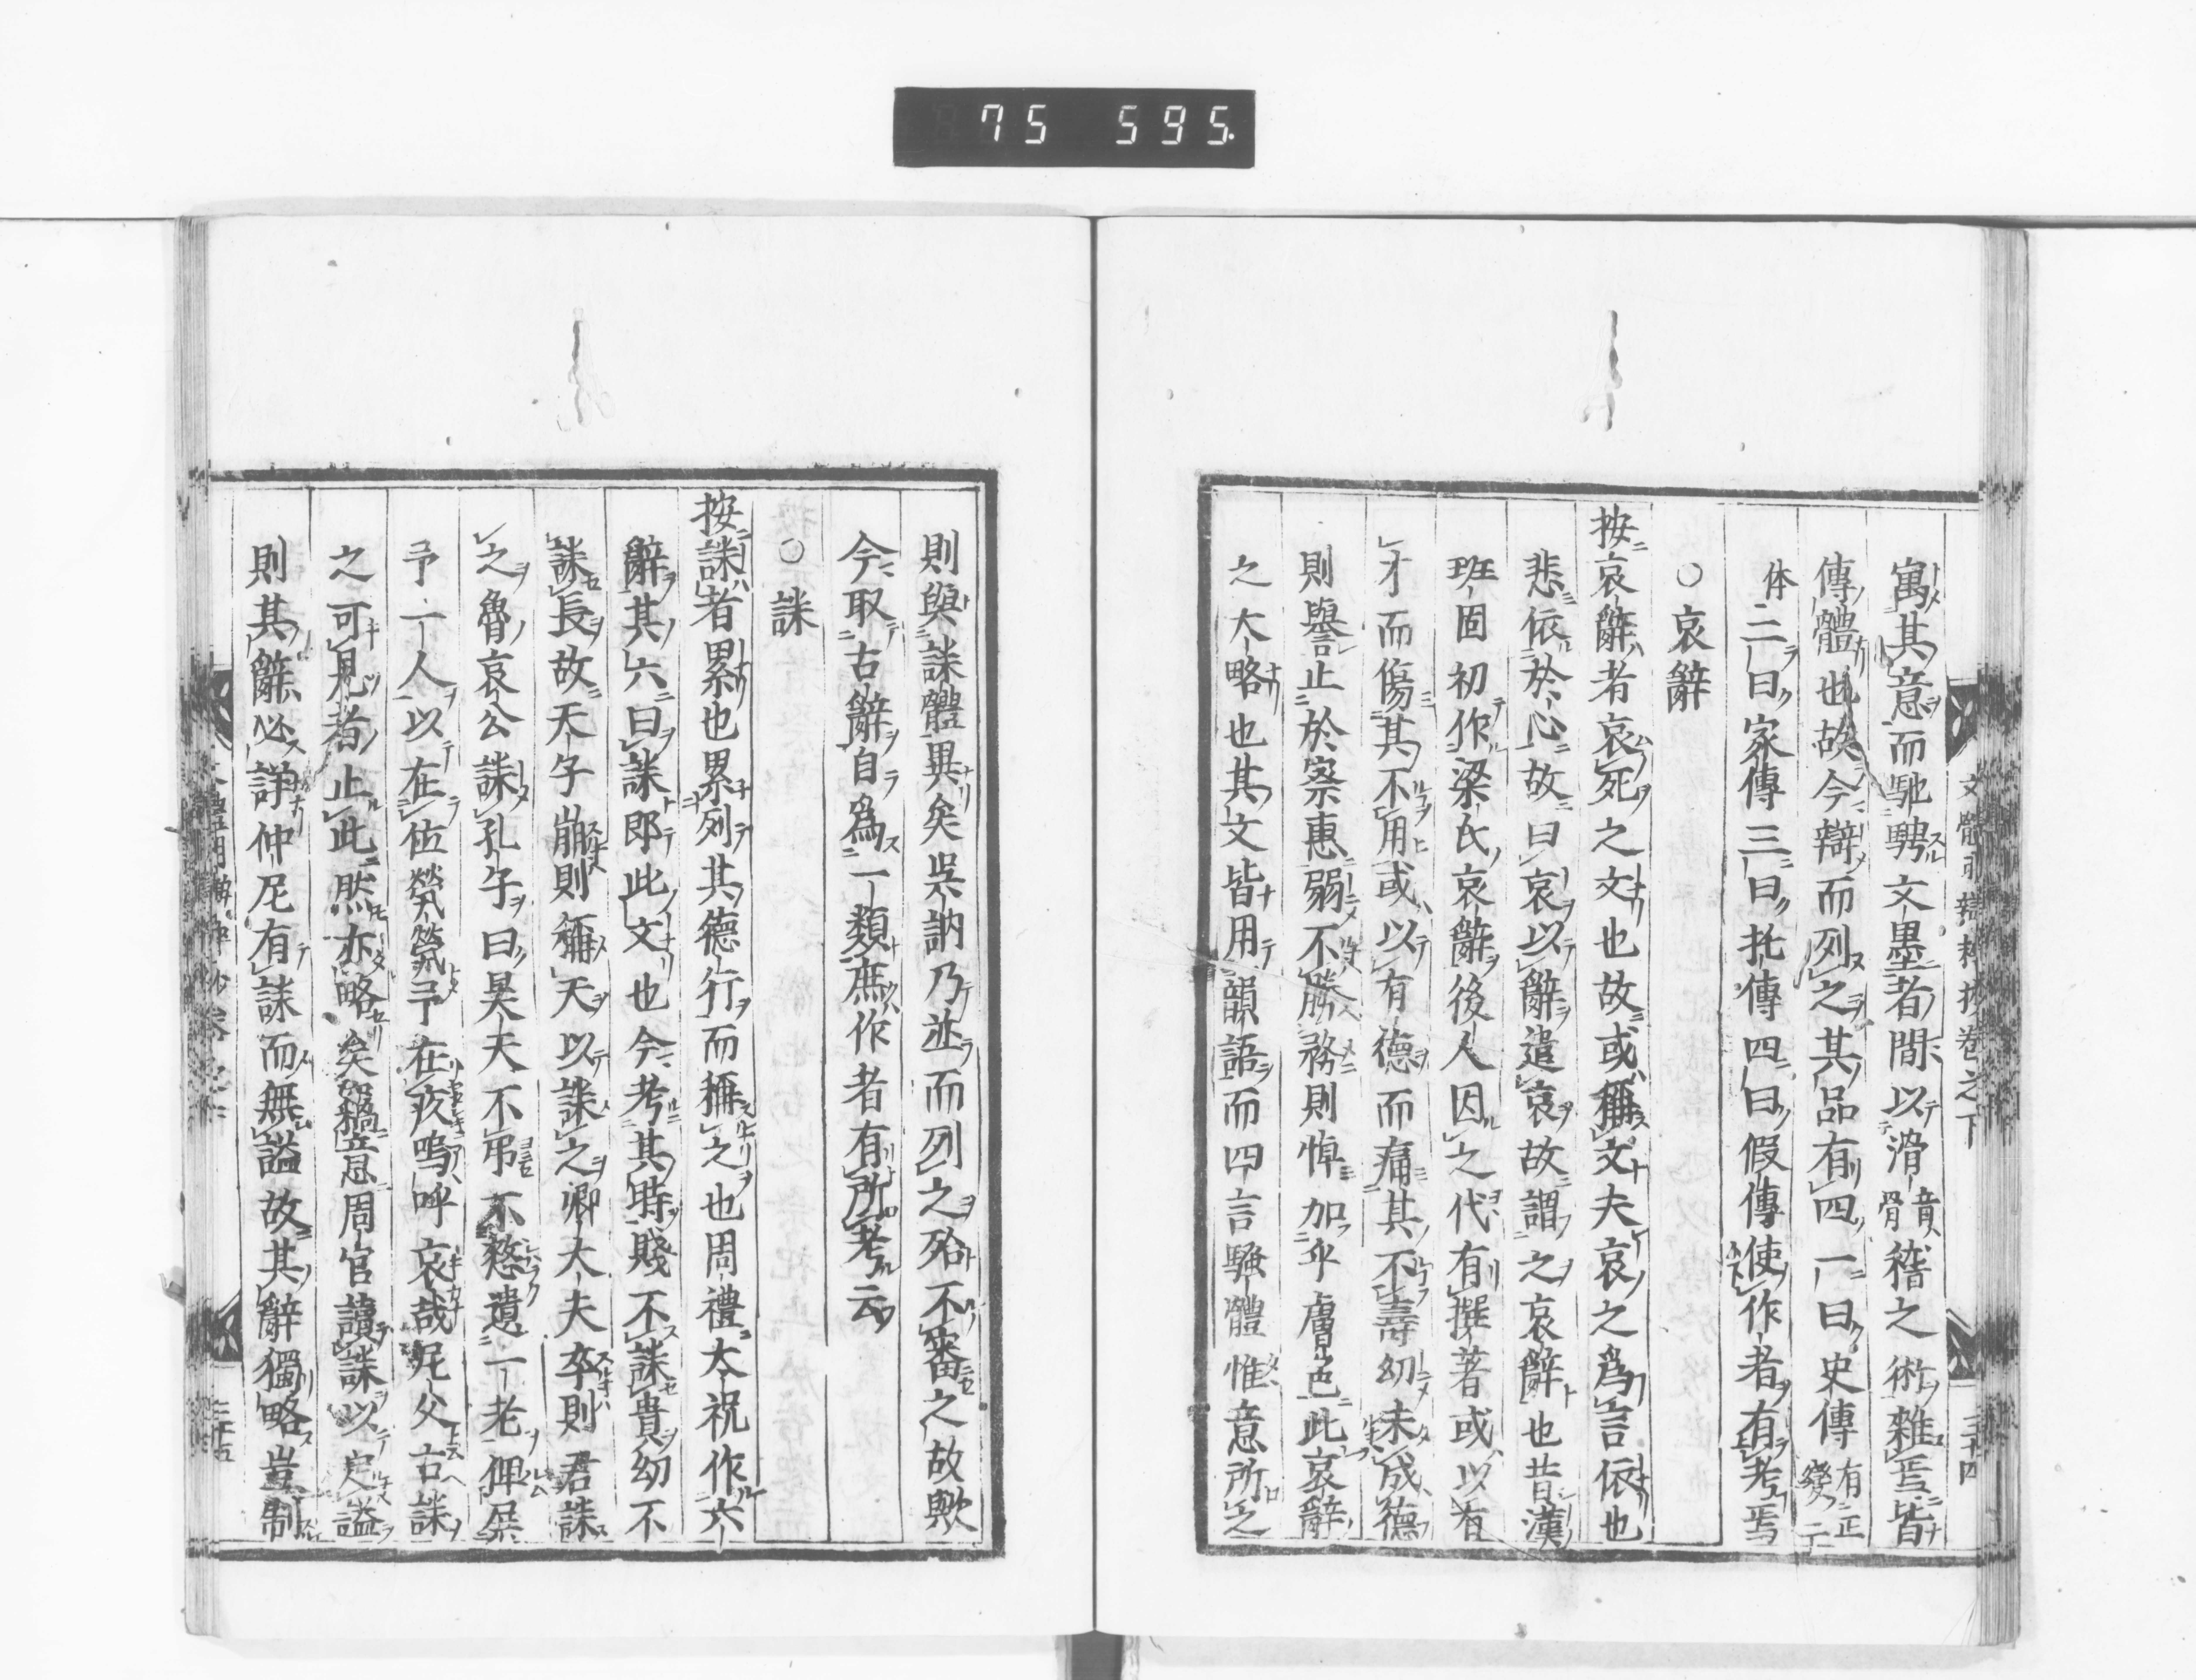 75 595.
文體明辯粹抄卷之下
三十四
寓其意而馳騁文墨者間以滑音骨稽之術雜焉皆
傳體也故今辯而列之其品有四一曰史傳有正變二
体二曰家傳三曰托傳四曰假傳使作者有考焉
○哀辭
按哀辭者哀死之文也故或稱文夫哀之爲言依也
悲依於心故曰哀以辭遣哀故謂之哀辭也昔漢
班固初作梁氏哀辭後人因之代有撰著或以有
才而傷其不用或以有德而痛其不壽幼未成德
則譽止於察惠弱不勝務則悼加乎膚色此哀辭
之大略也其文皆用韻語而四言騷體惟意所之
則與誄體異矣吳訥乃並而列之殆不審之故歟
今取古辭自爲一類庶作者有所考云
○誄
按誄者累也累列其德行而稱之也周禮太祝作六
辭其六曰誄即此文也今考其時賤不誄貴幼不
誄長故天子崩則稱天以誄之卿大夫卒則君誄
之魯哀公誄孔子曰昊夫不弔不憖遺一老俾屏
予一人以在位煢煢予在疚嗚呼哀哉尼父古誄
之可見者止此然亦略矣竊意周官讀誄以定謚
則其辭必詳仲尼有誄而無謚故其辭獨略豈制
三十五